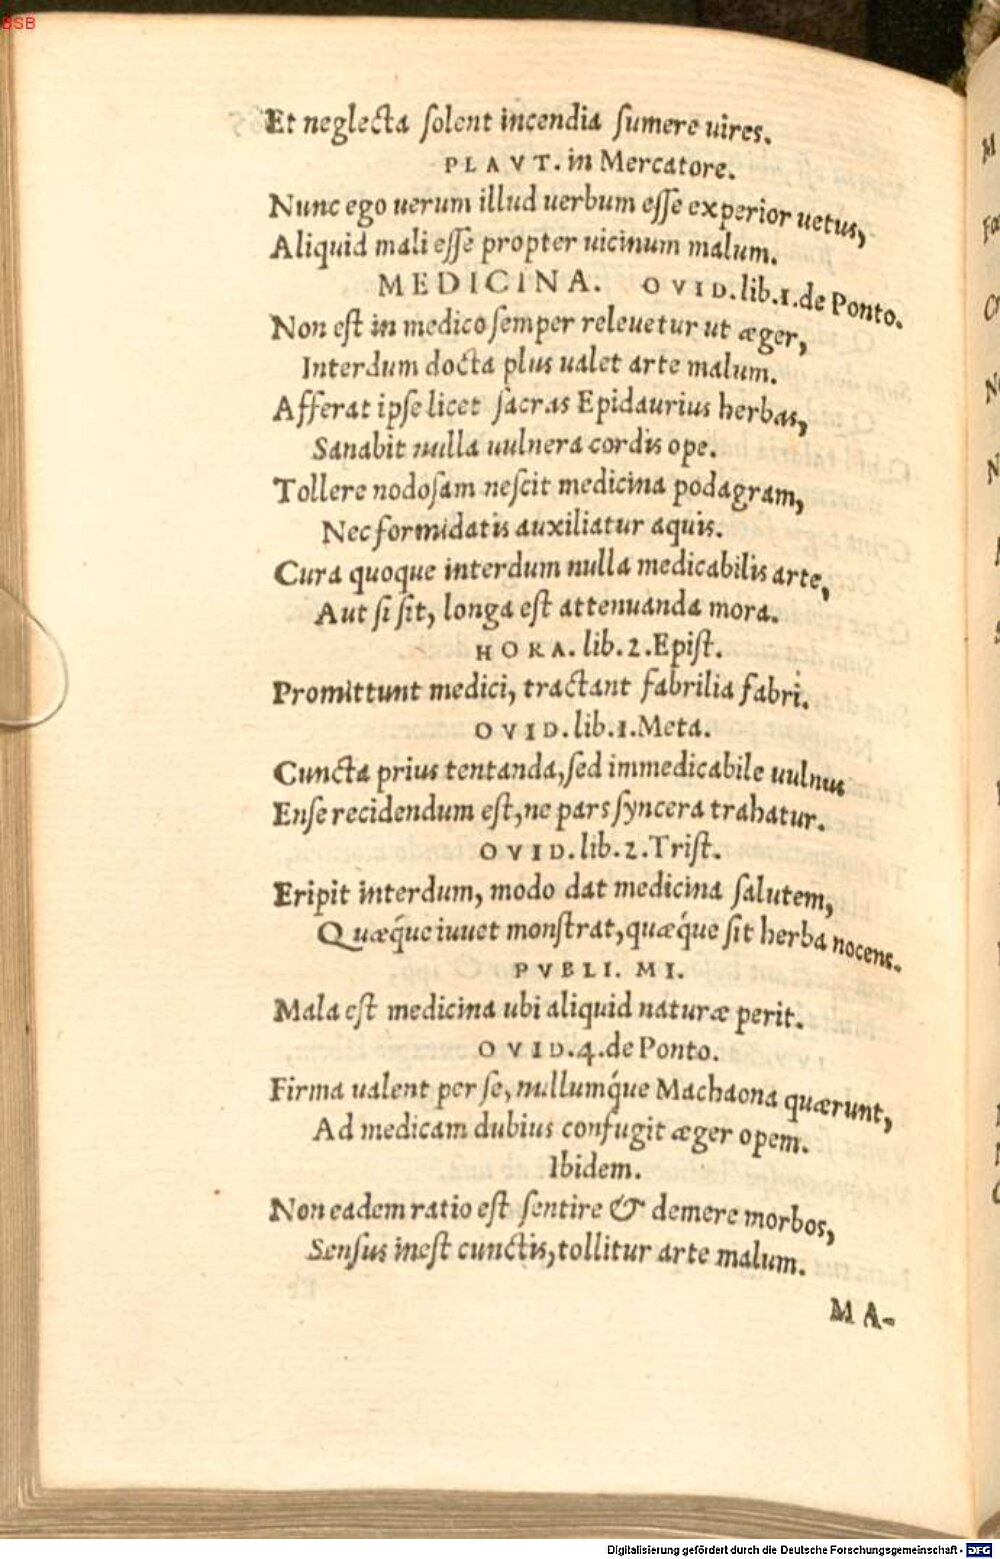 BSB
Et neglecta ſolent incendia ſumere uires.
PLAVT. in Mercatore.
Nunc ego uerum illud uerbum eſſe experior uetus,
Aliquid mali eſſe propter uicinum malum.
MEDICINA. OVID. lib. 1. de Ponto.
Non eſt in medico ſemper releuetur ut æger,
Interdum docta plus ualet arte malum.
Afferat ipſe licet ſacras Epidaurius herbas,
Sanabit nulla uulnera cordis ope.
Tollere nodoſam neſcit medicina podagram,
Nec formidatis auxiliatur aquis.
Cura quoque interdum nulla medicabilis arte,
Aut ſi ſit, longa eſt attenuanda mora.
HORA. lib. 2. Epiſt.
Promittunt medici, tractant fabrilia fabri.
OVID. lib. 1. Meta.
Cuncta prius tentanda, ſed immedicabile uulnus
Enſe recidendum eſt, ne pars ſyncera trahatur.
OVID. lib. 2. Triſt.
Eripit interdum, modo dat medicina ſalutem,
Quæq́ue iuuet monſtrat, quæq́ue ſit herba nocens.
PVBLI. MI.
Mala eſt medicina ubi aliquid naturæ perit.
OVID. 4. de Ponto.
Firma ualent per ſe, nullumq́ue Machaona quærunt,
Ad medicam dubius confugit æger opem.
Ibidem.
Non eadem ratio eſt ſentire & demere morbos,
Senſus ineſt cunctis, tollitur arte malum.
MA-
Digitalisierung gefördert durch die Deutsche Forschungsgemeinschaft - DFG